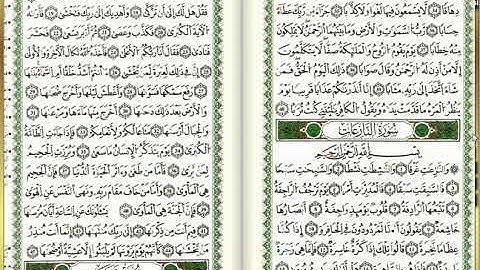 دِهَاقًا ٣٤ لَّا يَسْمَعُونَ فِيهَا لَغْوًا وَلَا كِذَّٰبًا ٣٥ جَزَآءً مِّن رَّبِّكَ عَطَآءً
حِسَابًا ٣٦ رَّبِّ ٱلسَّمَٰوَٰتِ وَٱلْأَرْضِ وَمَا بَيْنَهُمَا ٱلرَّحْمَٰنِ لَا يَمْلِكُونَ
مِنْهُ خِطَابًا ٣٧ يَوْمَ يَقُومُ ٱلرُّوحُ وَٱلْمَلَٰٓئِكَةُ صَفًّا لَّا يَتَكَلَّمُونَ
إِلَّا مَنْ أَذِنَ لَهُ ٱلرَّحْمَٰنُ وَقَالَ صَوَابًا ٣٨ ذَٰلِكَ ٱلْيَوْمُ ٱلْحَقُّ فَمَن
شَآءَ ٱتَّخَذَ إِلَىٰ رَبِّهِۦ مَـَٔابًا ٣٩ إِنَّآ أَنذَرْنَٰكُمْ عَذَابًا قَرِيبًا يَوْمَ
يَنظُرُ ٱلْمَرْءُ مَا قَدَّمَتْ يَدَاهُ وَيَقُولُ ٱلْكَافِرُ يَٰلَيْتَنِى كُنتُ تُرَٰبًا ٤٠
سُورَةُ النَّازِعَاتِ
بِسْمِ ٱللَّهِ ٱلرَّحْمَٰنِ ٱلرَّحِيمِ
وَٱلنَّٰزِعَٰتِ غَرْقًا ١ وَٱلنَّٰشِطَٰتِ نَشْطًا ٢ وَٱلسَّٰبِحَٰتِ سَبْحًا
٣ فَٱلسَّٰبِقَٰتِ سَبْقًا ٤ فَٱلْمُدَبِّرَٰتِ أَمْرًا ٥ يَوْمَ تَرْجُفُ ٱلرَّاجِفَةُ
٦ تَتْبَعُهَا ٱلرَّادِفَةُ ٧ قُلُوبٌ يَوْمَئِذٍ وَاجِفَةٌ ٨ أَبْصَٰرُهَا
خَٰشِعَةٌ ٩ يَقُولُونَ أَءِنَّا لَمَرْدُودُونَ فِى ٱلْحَافِرَةِ ١٠ أَءِذَا كُنَّا
عِظَٰمًا نَّخِرَةً ١١ قَالُوا۟ تِلْكَ إِذًا كَرَّةٌ خَاسِرَةٌ ١٢ فَإِنَّمَا هِىَ زَجْرَةٌ
فَقُلْ هَل لَّكَ إِلَىٰٓ أَن تَزَكَّىٰ ١٨ وَأَهْدِيَكَ إِلَىٰ رَبِّكَ فَتَخْشَىٰ ١٩ فَأَرَىٰهُ
ٱلْـَٔايَةَ ٱلْكُبْرَىٰ ٢٠ فَكَذَّبَ وَعَصَىٰ ٢١ ثُمَّ أَدْبَرَ يَسْعَىٰ ٢٢ فَحَشَرَ
فَنَادَىٰ ٢٣ فَقَالَ أَنَا۠ رَبُّكُمُ ٱلْأَعْلَىٰ ٢٤ فَأَخَذَهُ ٱللَّهُ نَكَالَ ٱلْـَٔاخِرَةِ وَٱلْأُولَىٰٓ
٢٥ إِنَّ فِى ذَٰلِكَ لَعِبْرَةً لِّمَن يَخْشَىٰٓ ٢٦ ءَأَنتُمْ أَشَدُّ خَلْقًا أَمِ ٱلسَّمَآءُ بَنَىٰهَا
٢٧ رَفَعَ سَمْكَهَا فَسَوَّىٰهَا ٢٨ وَأَغْطَشَ لَيْلَهَا وَأَخْرَجَ ضُحَىٰهَا ٢٩
وَٱلْأَرْضَ بَعْدَ ذَٰلِكَ دَحَىٰهَآ ٣٠ أَخْرَجَ مِنْهَا مَآءَهَا وَمَرْعَىٰهَا ٣١
وَٱلْجِبَالَ أَرْسَىٰهَا ٣٢ مَتَٰعًا لَّكُمْ وَلِأَنْعَٰمِكُمْ ٣٣ فَإِذَا جَآءَتِ ٱلطَّآمَّةُ
ٱلْكُبْرَىٰ ٣٤ يَوْمَ يَتَذَكَّرُ ٱلْإِنسَٰنُ مَا سَعَىٰ ٣٥ وَبُرِّزَتِ ٱلْجَحِيمُ
لِمَن يَرَىٰ ٣٦ فَأَمَّا مَن طَغَىٰ ٣٧ وَءَاثَرَ ٱلْحَيَوٰةَ ٱلدُّنْيَا ٣٨ فَإِنَّ ٱلْجَحِيمَ
هِىَ ٱلْمَأْوَىٰ ٣٩ وَأَمَّا مَنْ خَافَ مَقَامَ رَبِّهِۦ وَنَهَى ٱلنَّفْسَ عَنِ ٱلْهَوَىٰ
٤٠ فَإِنَّ ٱلْجَنَّةَ هِىَ ٱلْمَأْوَىٰ ٤١ يَسْـَٔلُونَكَ عَنِ ٱلسَّاعَةِ أَيَّانَ مُرْسَىٰهَا
٤٢ فِيمَ أَنتَ مِن ذِكْرَىٰهَآ ٤٣ إِلَىٰ رَبِّكَ مُنتَهَىٰهَآ ٤٤ إِنَّمَآ أَنتَ مُنذِرُ
مَن يَخْشَىٰهَا ٤٥ كَأَنَّهُمْ يَوْمَ يَرَوْنَهَا لَمْ يَلْبَثُوٓا۟ إِلَّا عَشِيَّةً أَوْ ضُحَىٰهَا ٤٦